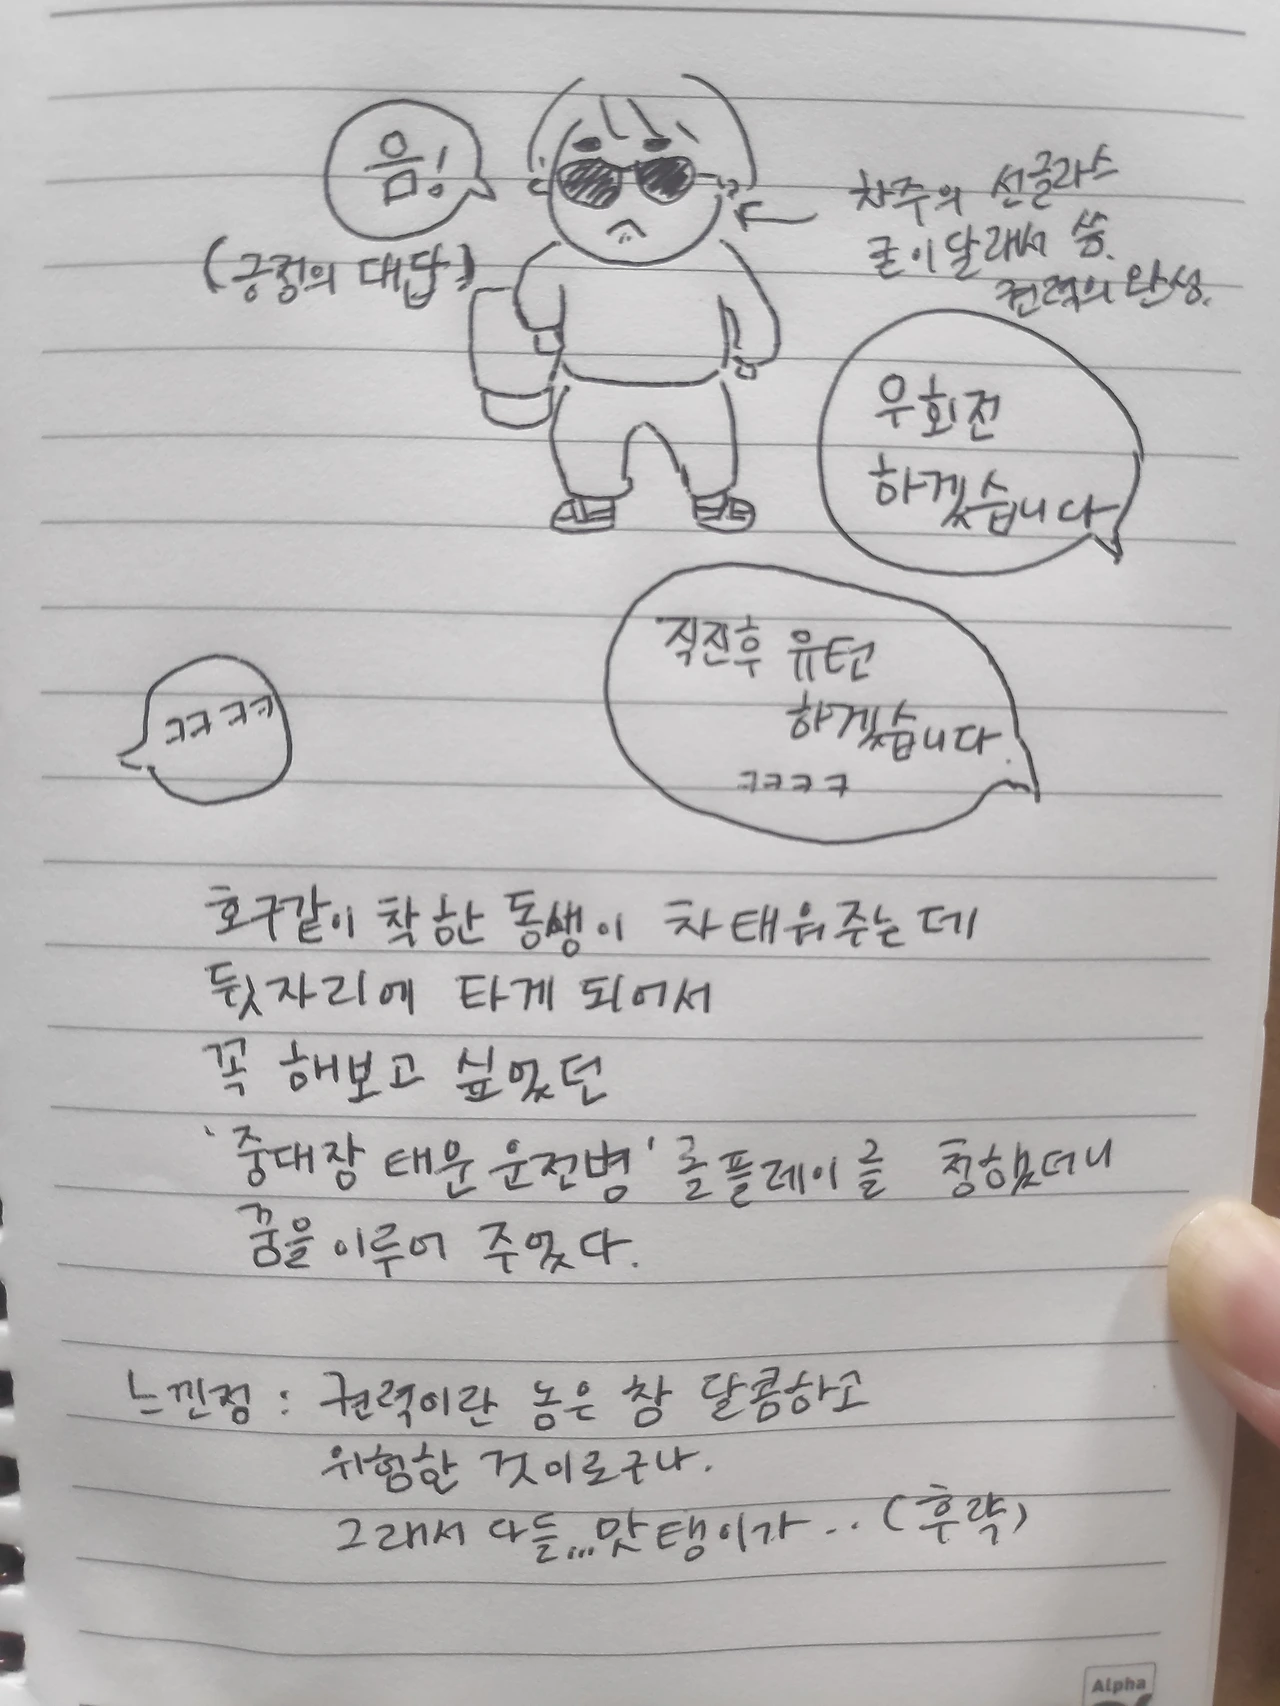 음!
(긍정의 대답)
차주의 선글라스
굳이 달래서 씀.
권력의 완성.
우회전
하겠습니다
직진후 유턴
하겠습니다.
ㅋㅋㅋㅋ
ㅋㅋㅋㅋ
호구같이 착한 동생이 차태워주는데
뒷자리에 타게 되어서
꼭 해보고 싶었던
'중대장 태운 운전병' 롤플레이를 청했더니
꿈을 이루어 주었다.
느낀점 : 권력이란 놈은 참 달콤하고
위험한 것이로구나.
그래서 다들...맛탱이가.. (후략)
Alpha